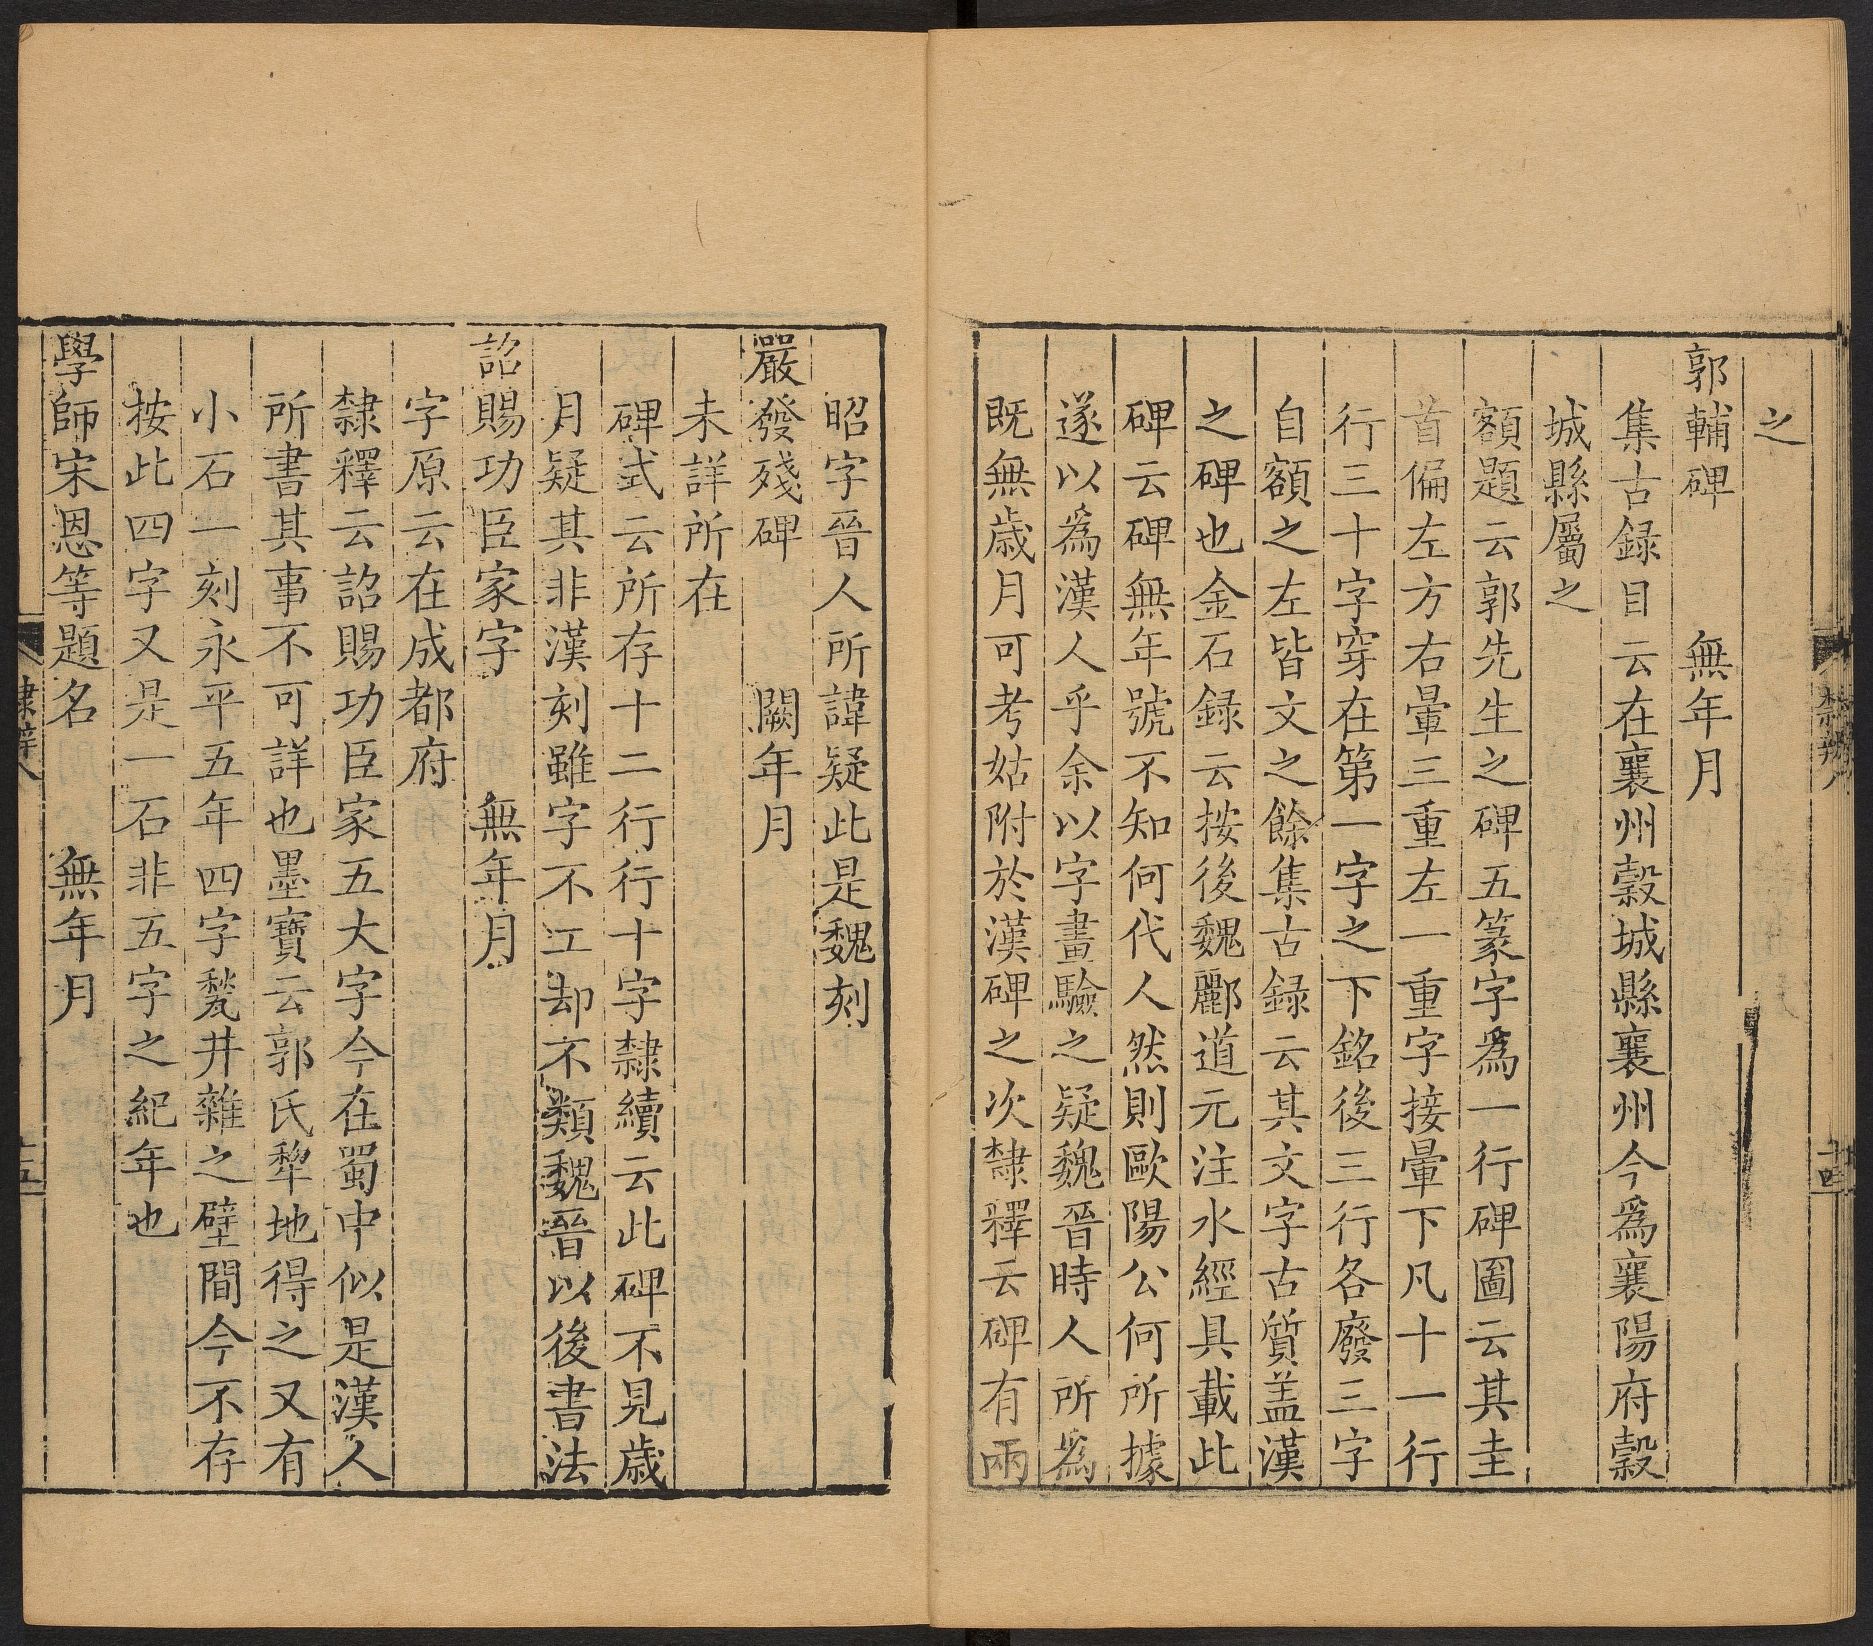 之
郭輔碑　無年月
集古録目云在襄州穀城縣襄州今爲襄陽府穀
城縣屬之
額題云郭先生之碑五篆字爲一行碑圖云其圭
首偏左方右暈三重左一重字接暈下凡十一行
行三十字穿在第一字之下銘後三行各廢三字
自額之左皆文之餘集古録云其文字古質盖漢
之碑也金石録云按後魏酈道元注水經具載此
碑云碑無年號不知何代人然則歐陽公何所據
遂以爲漢人乎余以字畫驗之疑魏晉時人所爲
既無歲月可考姑附於漢碑之次隸釋云碑有兩
隸辨八
十四
昭字晉人所諱疑此是魏刻
嚴發殘碑　闕年月
未詳所在
碑式云所存十二行行十字隸續云此碑不見歲
月疑其非漢刻雖字不工却不類魏晉以後書法
詔賜功臣家字　無年月
字原云在成都府
隸釋云詔賜功臣家五大字今在蜀中似是漢人
所書其事不可詳也墨寶云郭氏犂地得之又有
小石一刻永平五年四字甃井雜之壁間今不存
按此四字又是一石非五字之紀年也
學師宋恩等題名　無年月
隸辨八
十五